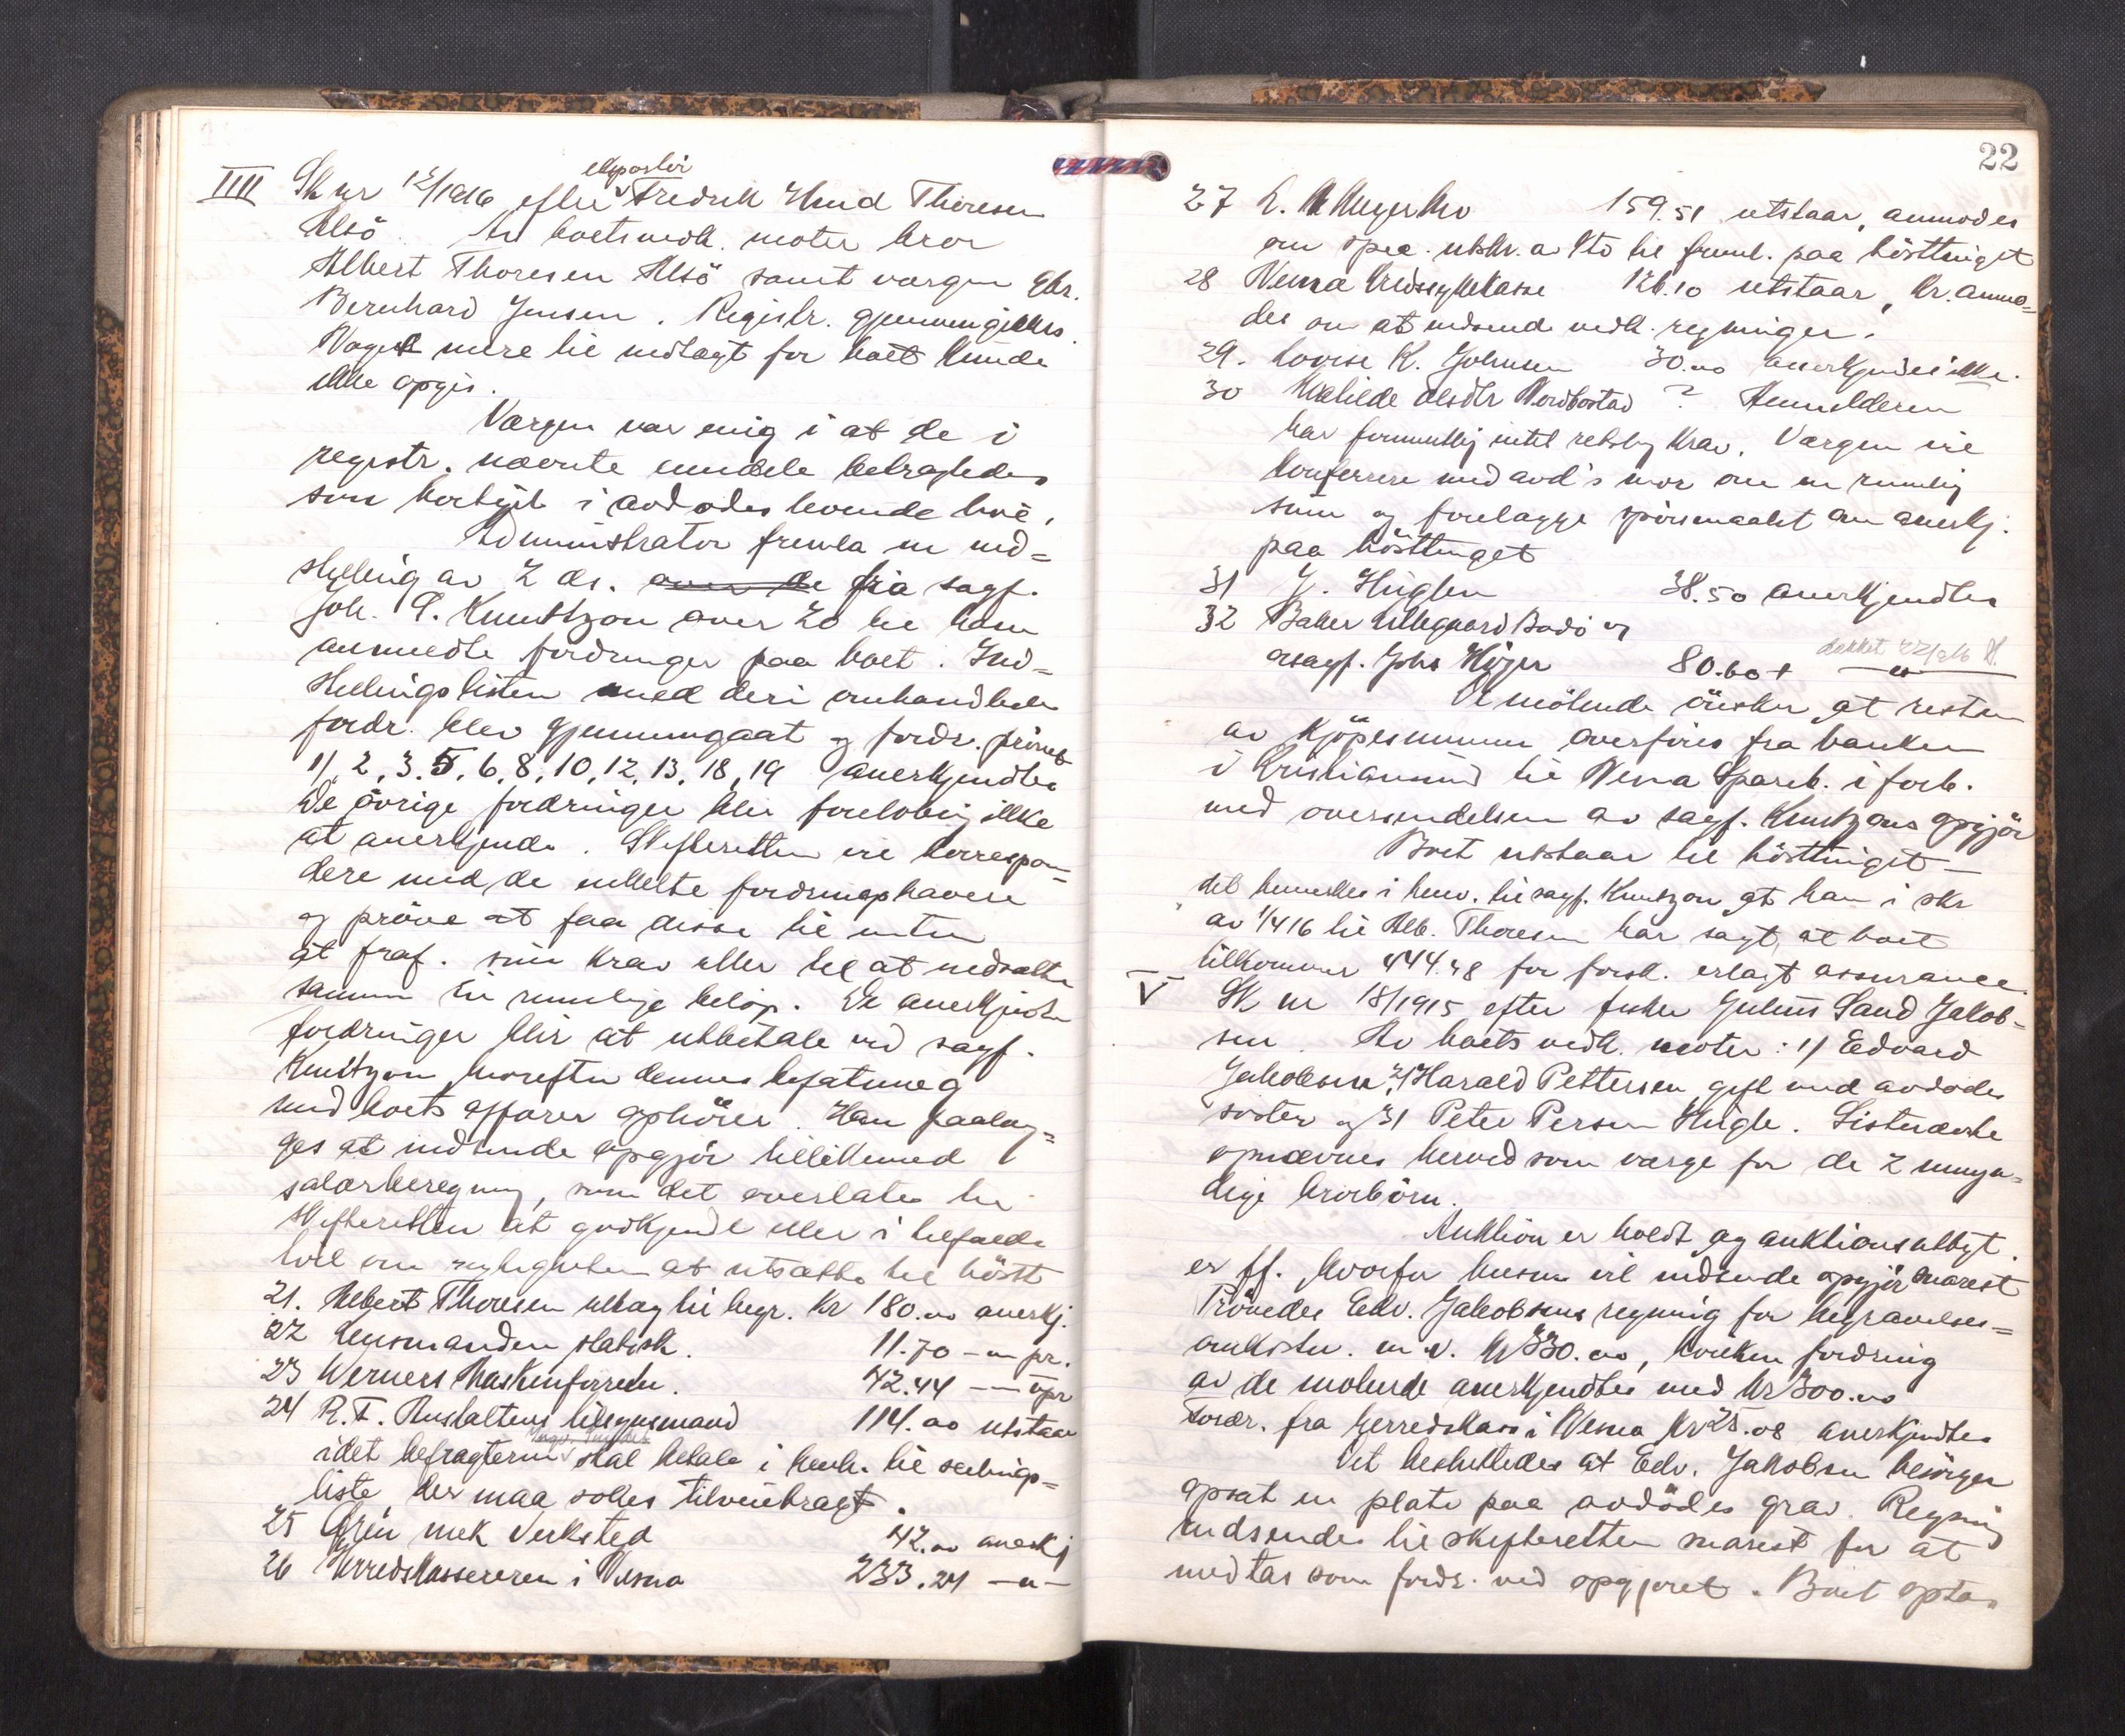 IIII Sk nr 12/1916 efter ekspeditør Fredrik Hund Thoresen
Alsö. Av boets vedk. møter bror
Albert Thoresen Alsö samt værgen Gbr.
Bernhard Jensen. Registr. gjennemgikkes.
Noget mere til indtægt for boet kunde
ikke opgis.
Værgen var enig i at de i
registr. nævnte eiendele betragtedes
som bortgit i avdødes levende live.
Administrator fremla en ind=
stilling av 2 ds. over de fra sagf.
Joh. P. Knutzon over 20 til ham
anmeldte fordringer paa boet. Ind=
stillingslisten med deri omhandlede
fordr. blev gjennemgaat og fordr. prövet
1), 2, 3, 5, 6, 8, 10, 12, 13, 18, 19 anerkjendtes
De övrige fordringer blev foreløbig ikke
at anerkjende. Skifteretten vil korrespon=
dere med de enkelte fordringshavere
og pröve at faa disse til enten
at fraf. sine krav eller til at nedsætte
samme til rimelige beløp. De anerkjendte
fordringer blir at utbetale ved sagf.
Knutzon hvorefter dennes befatning
med boets affærer ophörer. Han paalæg=
ges at indsende opgjör tillikemed
salærberegning, som det overlates til
skifteretten at godkjende eller i tilfælde
tvil om rigtigheten at utsætte til höstt
21. Albert Thoresen utlæg til begr. Kr 180.00 anerkj.
22 Lensmanden statisk. 11.70 — pr.
23 Werners Maskinforretn. 42.44 — upr
24 R.T. Anstaltens tilsynsmand 114.00 utstaar
idet befragteren skal betale i henh. til seilings=
liste, der maa søkes tilveiebragt.
25 Grein mek Verksted 42.00 anerkj
26 Herredskassereren i Vesna 233.24 —"—
22
27 L. Meyer Mo 159.51 utstaar, anmodes
om spec. utskr. a Kto til freml. paa hösttinget
28 Nesna Kredssykekasse 126.10 utstaar, Kr. anmo=
des om at indsende vedk. regninger.
29. Lovise K. Johnsen 30.00 anerkjendes ikke.
30 Matilde Olsdtr Nordbostad ? Anmelderen
har formentlig intet retslig krav. Værgen vil
konferere med avd's mor om en rimelig
sum og forelægge spörsmaalet om anerkj.
paa hösttinget
31 J. Hugløen 38.50 anerkjendtes
32 Baker Lillegaard Bodö v
orsagf. Johs Höyer 80.60 + —"—
dækket 22/9 16 H.
De mötende önsker at resten
av kjöpesummen overföres fra banken
i Kristiansund til Nesna Spareb. i forb.
med oversendelsen av sagf. Knutzons opgjör
Boet utstaar til hösttinget —
det bemerkes i henv. til sagf. Knutzon at han i skr
av 1/4 16 til Alb. Thoresen har sagt, at boet
tilkommer 444.48 for forsk. erlagt assurance.
V Sk nr 18/1915 efter fisker Julius Sand Jakob-
sen. Av boets vedk. møter: 1) Edvard
Jakobsen 2) Harald Pettersen gift med avdødes
søster og 3) Peter Persen Hugle. Sistnævnte
opnævnes herved som værge for de 2 umyn=
dige brorbörn.
Auktion er holdt og auktionsutbyt.
er ff. hvorfor lensm vil indsende opgjör snarest
Prövedes Edv. Jakobsens regning for begravelses=
omkostn. m.v. Kr 330.00, hvilken fordring
av de møtende anerkjendtes med Kr 300.00
Fordr. fra herredskass i Nesna Kr 25.08 anerkjendtes
Det besluttedes at Edv. Jakobsen besörger
opsat en plate paa avdödes grav. Regning
indsendes til skifteretten snarest for at
medtas som fordr. ved opgjøret. Boet opta=